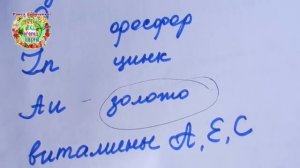 фосфор
Zn цинк
Аи - золото
витамины А, Е, С